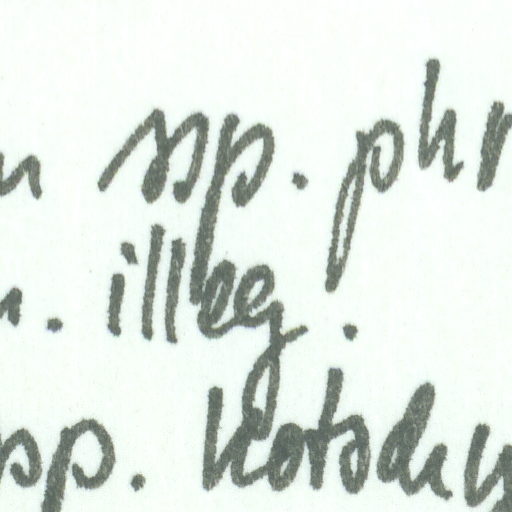 ssp. phr
. illeg.
sp. kotschy